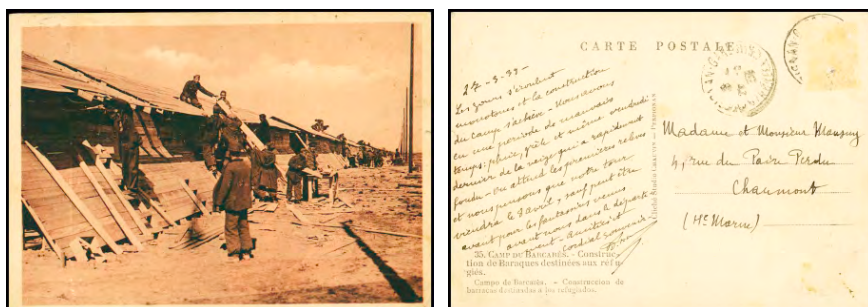 CARTE POSTALE
27-3-39
Les jours s'écoulent
monotones et la construction
du camp s'achève. Nous avons
eu une période de mauvais
temps: pluie, grêle et même vendredi
dernier de la neige qui a rapidement
fondu. On attend les premières relèves
et nous pensons que notre tour
viendra le 8 avril, sauf peut être
avant pour les fantassins venus
avant nous dans le départe-
ment. Amitiés et
cordial souvenir.
35. CAMP DU BARCARÈS. - Construc-
tion de Baraques destinées aux réfu-
giés.
Campo de Barcarès. - Construccion de
barracas destinadas a los refugiados.
Cliché Studio CHAUVIN - PERPIGNAN
Madame et Monsieur
4, rue du Puits Perdu
Chaumont
(Hte Marne)